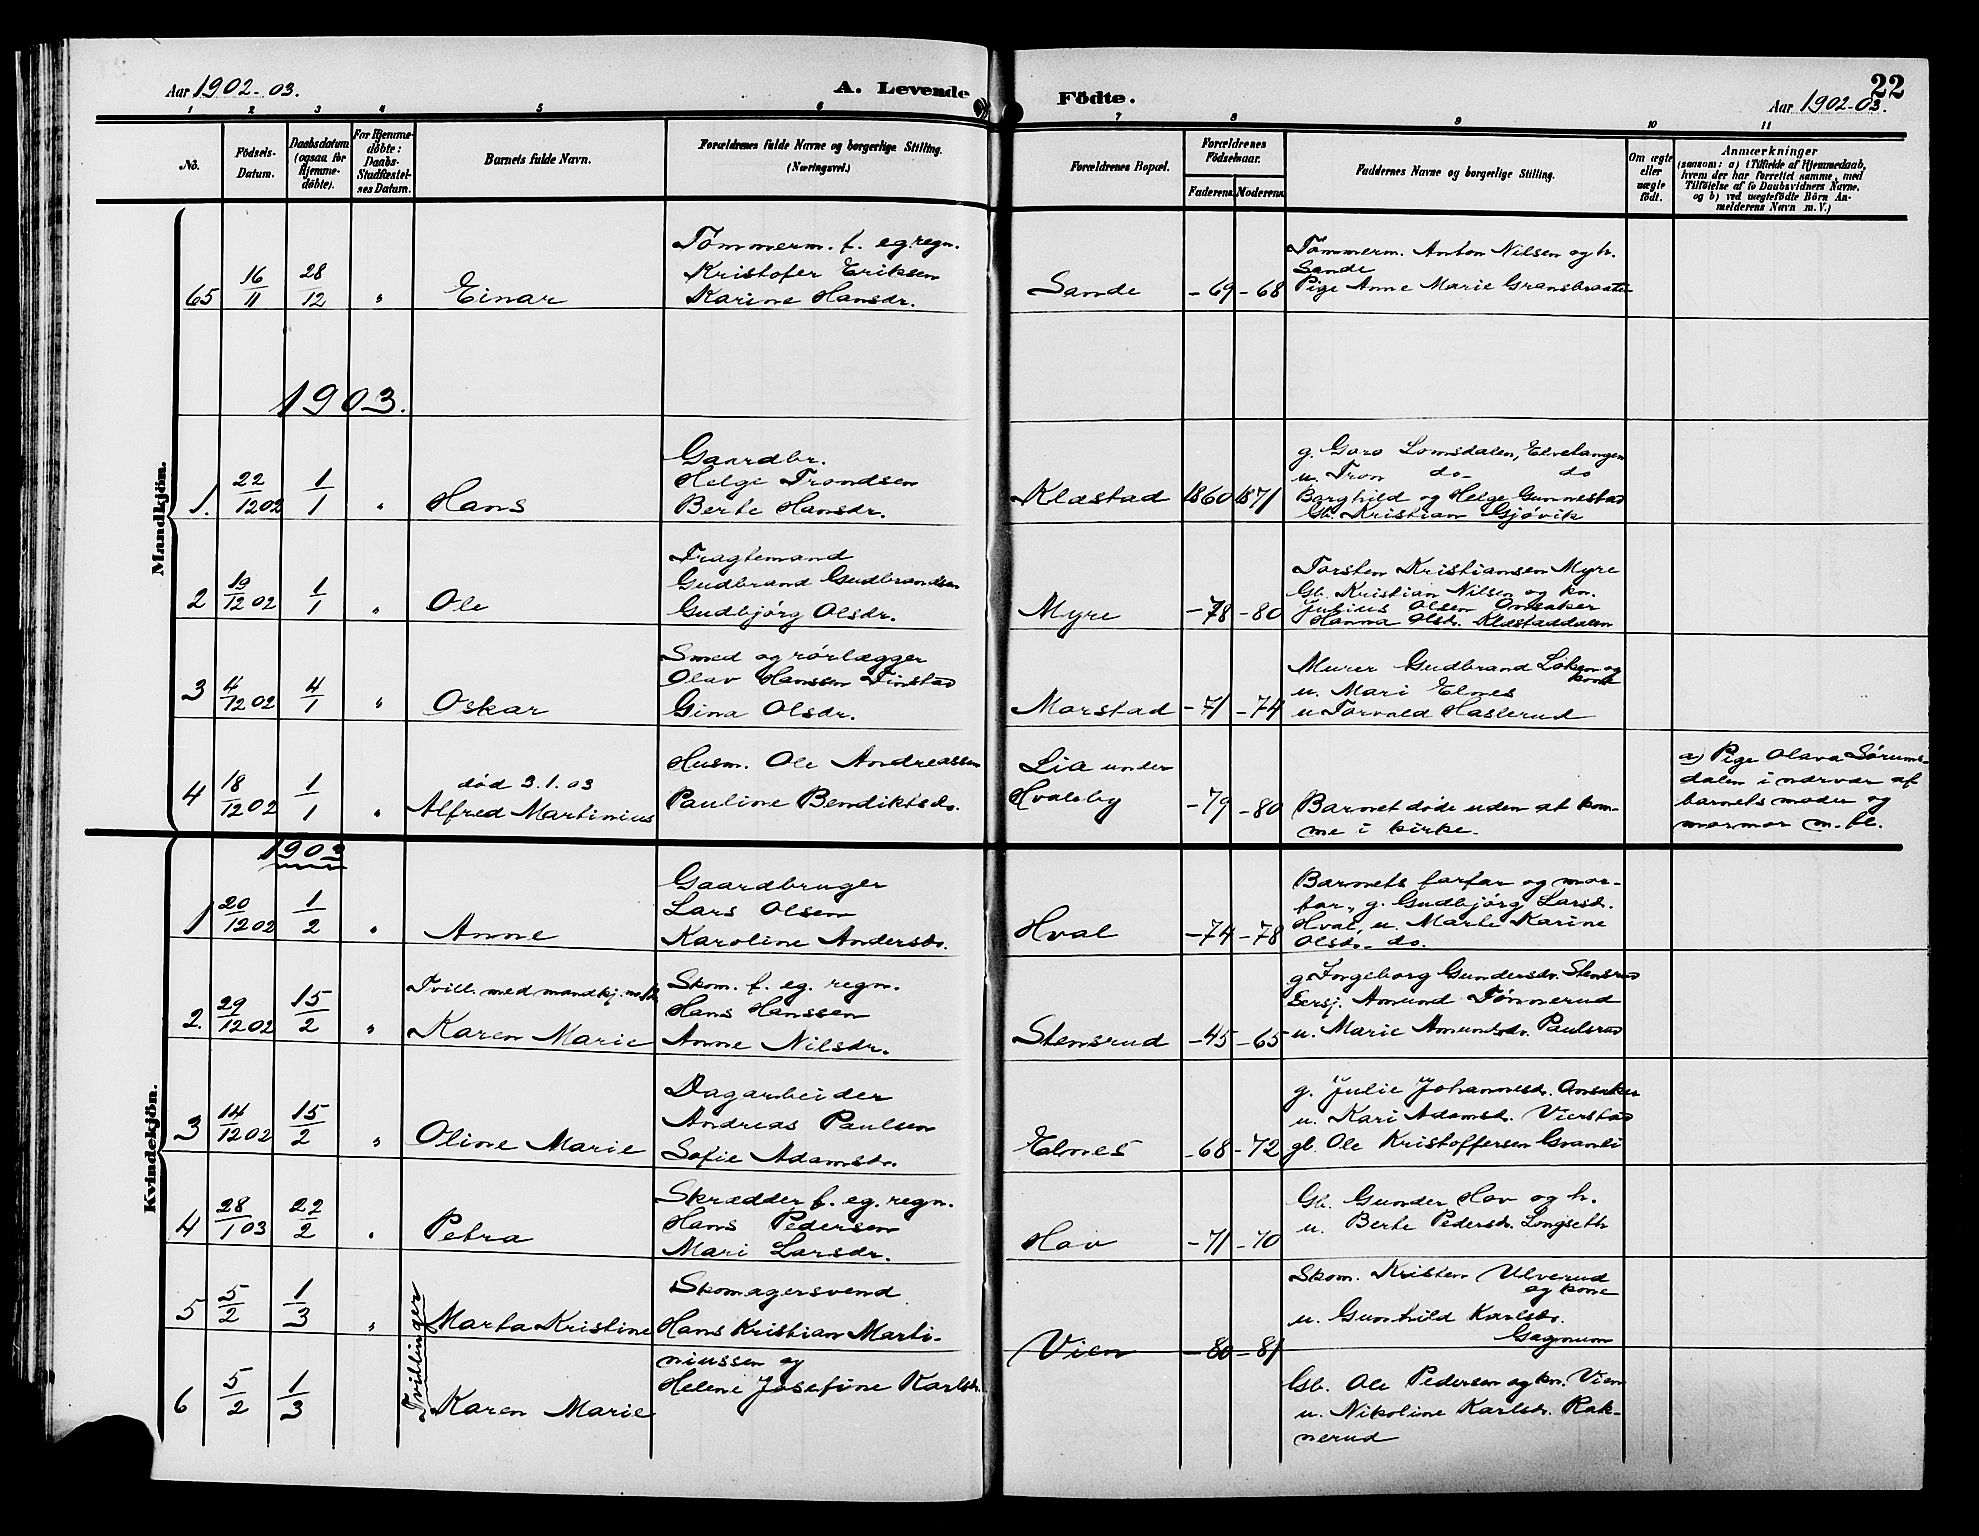 Aar 1902-03.
A. Levende
Födte.
22
Aar 1902-03.
1 2 3 4 5 6 7 8 9 10 11
No.
Födsels-
Datum.
Daabsdatum
(ogsaa for
Hjemme-
döbte).
For Hjemme-
döbte:
Daabs-
Stadfæstel-
ses Datum.
Barnets fulde Navn.
Forældrenes fulde Navne og borgerlige Stilling.
(Næringsvei.)
Forældrenes Bopæl.
Forældrenes
Födselsaar.
Faderens. Moderens.
Faddernes Navne og borgerlige Stilling.
Om ægte
eller
uægte
født.
Anmærkninger
(saasom: a) i Tilfælde af Hjemmedaab,
hvem der har forrettet samme, med
Tilföielse af to Daabsvidners Navne,
og b) ved uægtefödte Börn An-
melderens Navn m. V.)
Mandkjön.
65 16/11 28/12 " Einar
Tømmerm. f. eg. regn.
Kristofer Eriksen
Karine Hansdr.
Sande -69 -68
Tømmerm. Anton Nilsen og h.
Sande
Pige Anne Marie Gransbraaten
1903.
1. 22/12 02 1/1 " Hans
Gaardbr.
Helge Trondsen
Berte Hansdr.
Klæstad 1860 1871
g. Goro Lomsdalen, Elvetangen
u. Tron do- do
Borghild og Helge Gunnestad
Gb. Kristian Gjøvik
2 19/12 02 1/1 " Ole
Fragtemand
Gudbrand Gudbrandsen
Gudbjørg Olsdr.
Myre -78 -80
Torsten Kristiansen Myre
Gb. Kristian Nilsen og kn.
Julius Olsen Onsaker
Hanna Olsdr. Klæstaddalen
3 4/12 02 4/1 " Oskar
Smed og rørlægger
Olav Hanssen Finstad
Gina Olsdr.
Morstad -71 -74
Murer Gudbrand Løken og
kone
u. Mari Elnes
u Torvald Haslerud
4 18/12 02 1/1 "
død 3.1.03
Alfred Martinius
Husm. Ole Andreassen
Pauline Bendiktsdr.
Lia under
Hvalsby -79 -80
Barnet døde uden at kom-
me i kirke.
a) Pige Olava Sørums-
dalen i nærvær af
barnets moder og
mormor m. fl.
Kvindekjön.
1903
1 20/12 02 1/2 " Anne
Gaardbruger
Lars Olsen
Karoline Andersdr.
Hval -74 -78
Barnets farfar og mor-
far, g. Gudbjørg Larsd.
Hval, u. Marte Karine
Olsdr. do.
2. 29/12 02 15/2 "
Tvill. med mandkj. no
Karen Marie
Skom. f. eg. regn.
Hans Hanssen
Anne Nilsdr.
Stensrud -45 -65
g. Ingeborg Gundersdr. Stensrud
Sersj. Amund Tømmerud
u. Marie Amundsdr. Paulsrud
3 14/12 02 15/2 " Oline Marie
Dagarbeider
Andreas Paulsen
Sofie Adamsdr.
Elnes -68 -72
g. Julie Johannesd. Onsaker
u. Kari Adamsd. Vierstad
gb. Ole Kristoffersen Granli
4 28/1 03 22/2 " Petra
Skrædder f. eg. regn.
Hans Pedersen
Mari Larsdr.
Hov -71 -70
Gb. Gunder Hov og h.
u. Berte Pedersdr. Longseth
Tvillinger
5 5/2 1/3 " Marta Kristine
Skomagersvend
Hans Kristian Marti-
niussen og
Helene Josefine Karlsdr.
Vien -80 -81
Skom. Kristen Ulverud
og kone
u. Gunhild Karlsdr.
Gagnum
6 5/2 1/3 Karen Marie
Gb. Ole Pedersen og kn. Vien
u. Nikoline Karlsdr. Rak-
nerud